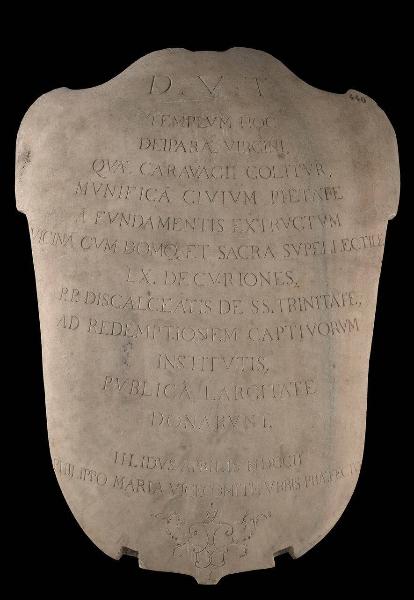 D. V. T
440
TEMPLVM HOC
DEIPARÆ VIRGINI,
QVÆ CARAVAGII COLITVR,
MVNIFICA CIVIVM PIETATE
A FVNDAMENTIS EXTRVCTVM
VICINA CVM DOMO, ET SACRA SVPELLECTILE
LX. DECVRIONES,
RR. DISCALCEATIS DE SS. TRINITATE,
AD REDEMPTIONEM CAPTIVORVM
INSTITVTIS,
PVBLICA LARGITATE
DONARVNT.
III. IDVS APRILIS
PHILIPPO MARIA VICECOMITE VRBIS PRÆFECTO